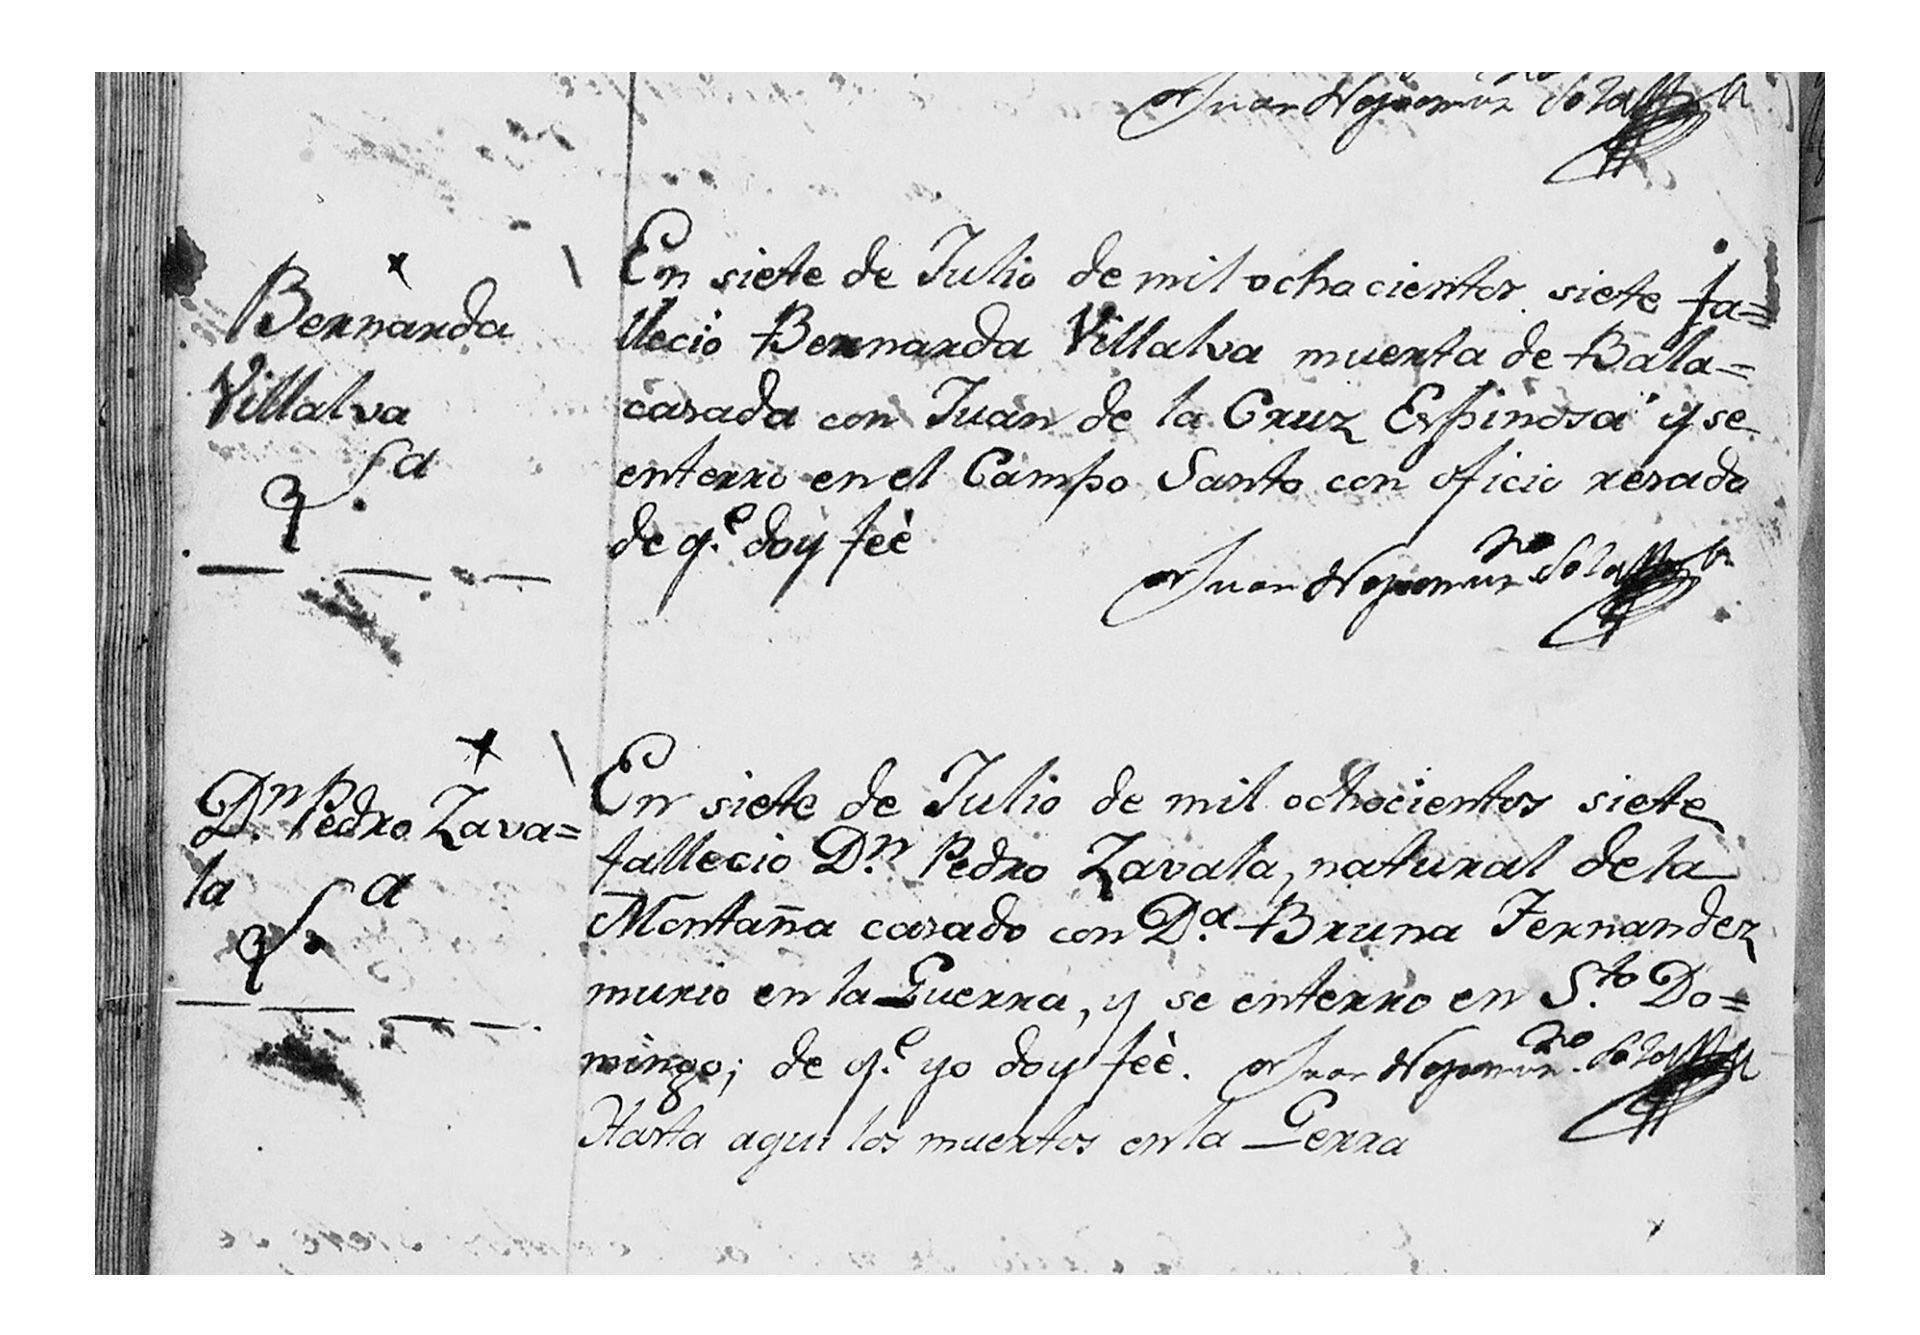 Juan Nepomuz.no Sola
Bernarda
Villalva
En siete de Julio de mil ochacientos siete fa=
lleciò Bernarda Villalva muerta de Bala=
casada con Juan de la Cruz Espinosa y se
enterro en el Campo Santo con oficio resado
de q.e doy feè
Juan Nepomuz.no Sola
D.n Pedro Zava=
la
En siete de Julio de mil ochocientos siete
fallecio D.n Pedro Zavala, natural de la
Montaña casado con D.a Bruna Fernandez
murio en la Guerra, y se enterro en S.to Do=
mingo; de q.e yo doy feè. Juan Nepomuz.no Sola
Hasta aqui los muertos en la Gerra